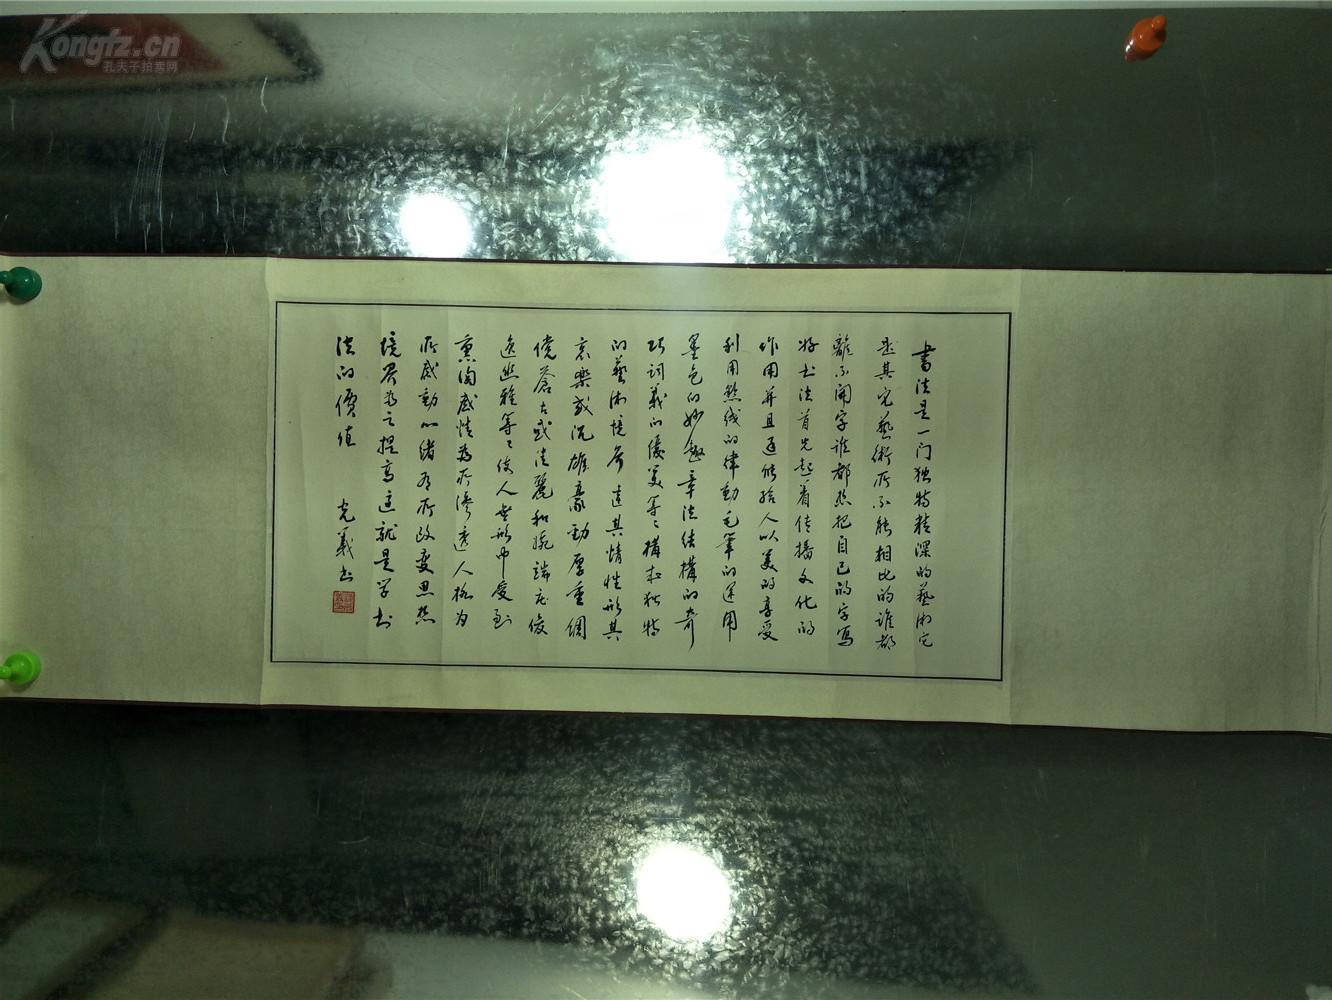 Kongfz.cn
孔夫子拍卖网
書法是一门独特精深的藝術它
是其它藝術所不能相比的谁都
離不開字谁都想把自己的字寫
好书法首先起着传播文化的
作用并且还能给人以美的享受
利用點线的律動毛筆的运用
墨色的妙趣章法结構的奇
巧词義的優美等等構起独特
的藝術境界 達其情性形其
哀樂或沉雄豪勁厚重绸
儻蒼古或清麗和婉端庄俊
逸幽雅等等使人無形中受到
熏陶感情为所滲透人格为
所感動心绪為所改变思想
境界為之提高這就是学书
法的價值 光義书